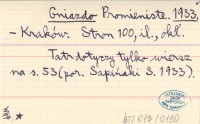 Gniazdo Promieniste. 1933.
- Kraków. Stron 100, il., okł.
Tatr dotyczy tylko wiersz
na s. 53 (por. Sapiński S. 1933).